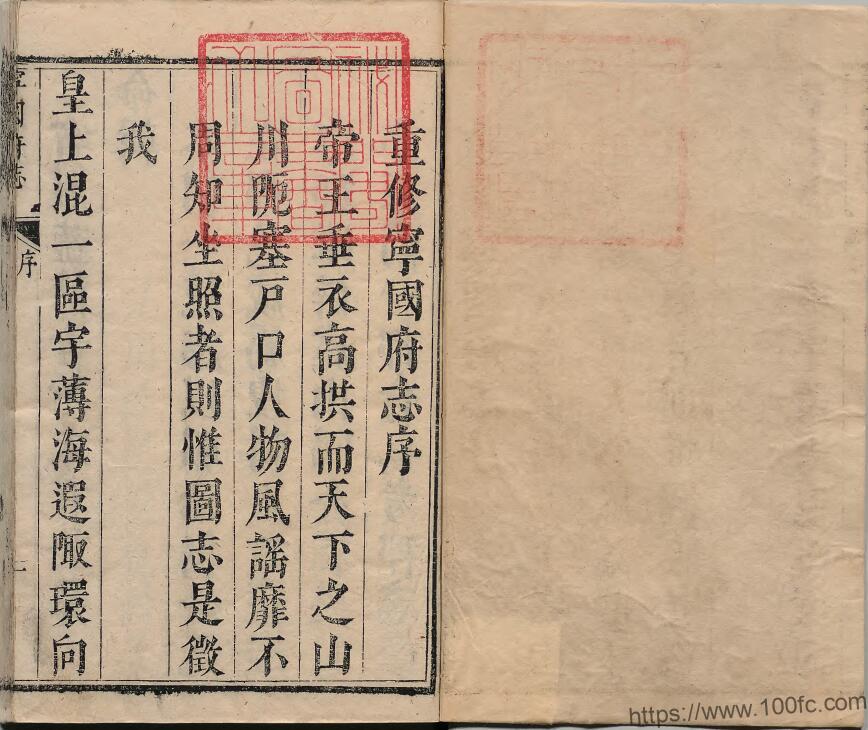 重修寧國府志序
帝王垂衣高拱而天下之山
川阨塞戸口人物風謡靡不
周知坐照者則惟圖志是徵
我
皇上混一區宇薄海遐陬環向
寧國府志
序
一
https://www.100fc.com